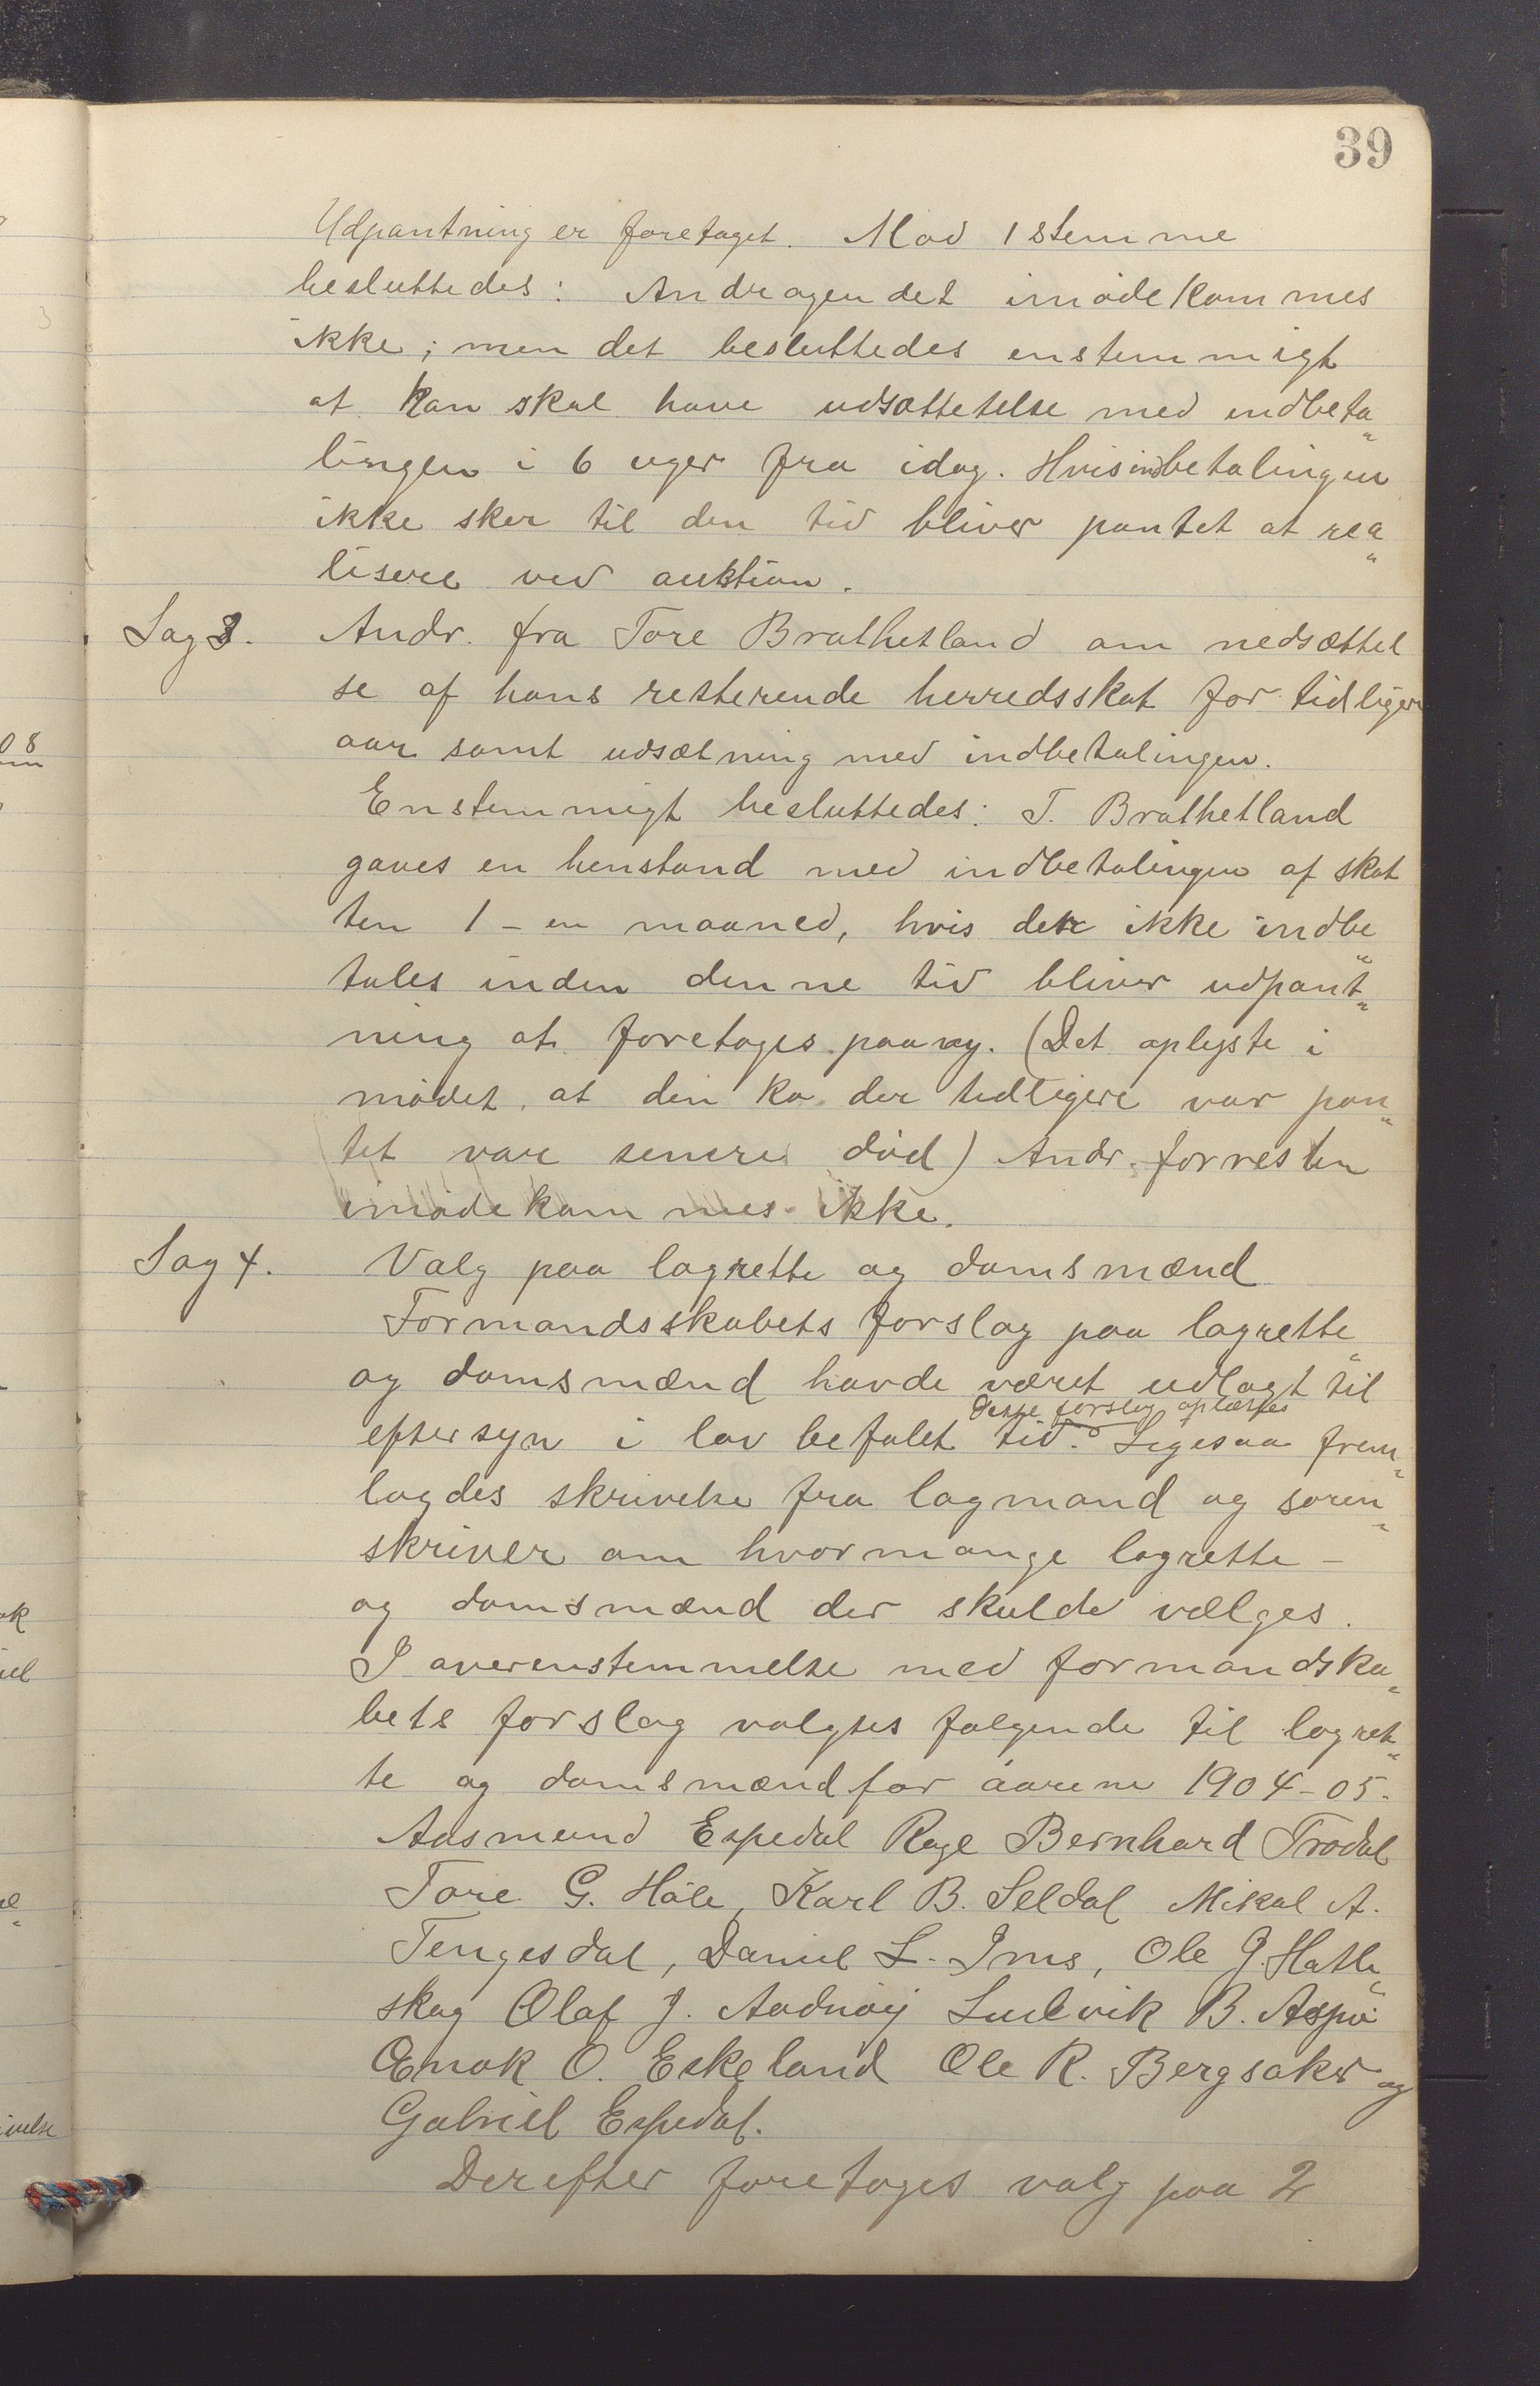 39
Udpantning er foretaget. Mod 1 stemme
besluttedes: Andragendet imødekommes
ikke; men det besluttedes enstemmigt
at han skal have udsættetelse med indbeta„
lingen i 6 uger fra idag. Hvis indbetalingen
ikke sker til den tid bliver pantet at rea„
lisere ved auktion.
Sag 3. Andr. fra Tore Brathetland om nedsættel
se af hans resterende herredsskat for tidligere
aar samt udsætning med indbetalingen.
Enstemmigt besluttedes: T. Brathetland
gaves en henstand med indbetalingen af skat
ten 1 - en maaned, hvis den ikke indbe„
tales inden denne tid bliver udpant„
ning at foretages paany. (Det oplyste i
mødet, at den ko der tidligere var pan„
tet var senere død) Andr. forresten
imødekommes ikke.
Sag 4. Valg paa lagrette og domsmænd
Formandsskabets forslag paa lagrette„
og domsmænd havde været udlagt til
Dette forslag oplæstes
eftersyn i lov befalet tid. Ligesaa frem„
lagdes skrivelse fra lagmand og soren„
skriver om hvormange lagrette-
og domsmænd der skulde vælges.
I overenstemmelse med formandska„
bets forslag valgtes følgende til lagret„
te og domsmænd for aarene 1904-05.
Aasmund Espedal Rage Bernhard Frodal
Tore G. Høle, Karl B. Seldal Mikal A.
Tengesdal, Daniel L. Ims, Ole J. Hatle„
skog Olaf J. Aadnøy Ludvik B. Aspø
Enok O. Eskeland Ole R. Bergsaker og
Gabriel Espedal.
Derefter foretages valg paa 2